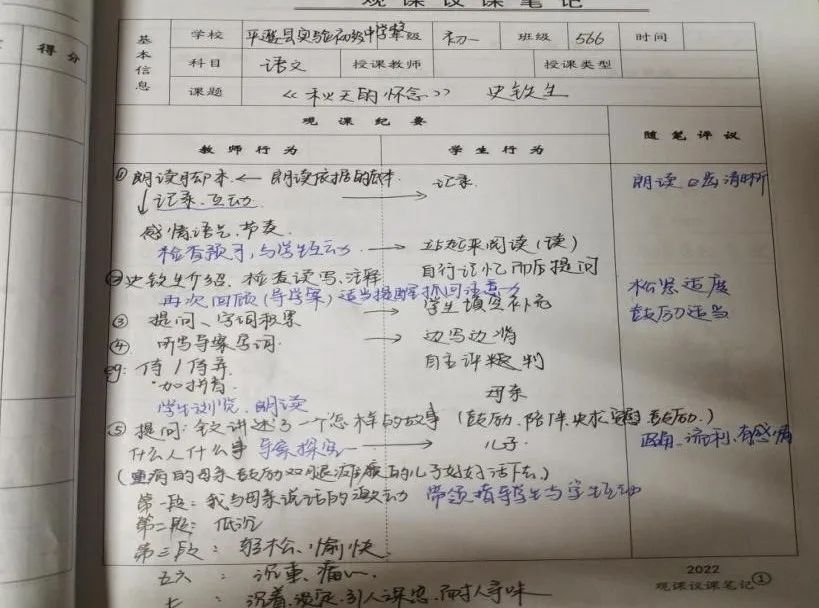 观课议课笔记
得分
基本信息
学校 平遥县实验初级中学 年级 初一 班级 566 时间
科目 语文 授课教师 授课类型
课题 《秋天的怀念》 史铁生
观课纪要 随笔评议
教师行为 学生行为
① 朗读 ← 朗读依据的 → 记录 朗读口齿清晰
↓记录、互动
感情语气、节奏
检查预习,与学生互动 → 站起来阅读(读)
自行记忆而后提问
②史铁生介绍,检查读写、注释 松紧适度
再次回顾(导学案)适当提醒抓回注意力
③ 提问、字词积累 → 学生填空补充 鼓励适当
④ 听写导案字词 → 边写边背
eg: 侍/侍弄 自主评判
加拼音
学生浏览、朗读 母亲
⑤ 提问:文讲述了一个怎样的故事 (鼓励、陪伴、央求、鼓励。)
什么人什么事 导案探究 → 儿子 正确、流利、有感情
(重病的母亲鼓励双腿瘫痪的儿子好好活下去。)
第一段:我与母亲说话的激动 带领指导学生与学生互动
第二段:低沉
第三段:轻松、愉快
五六:沉重、痛心、
七:沉着、淡定、引人深思,耐人寻味
2022
观课议课笔记①